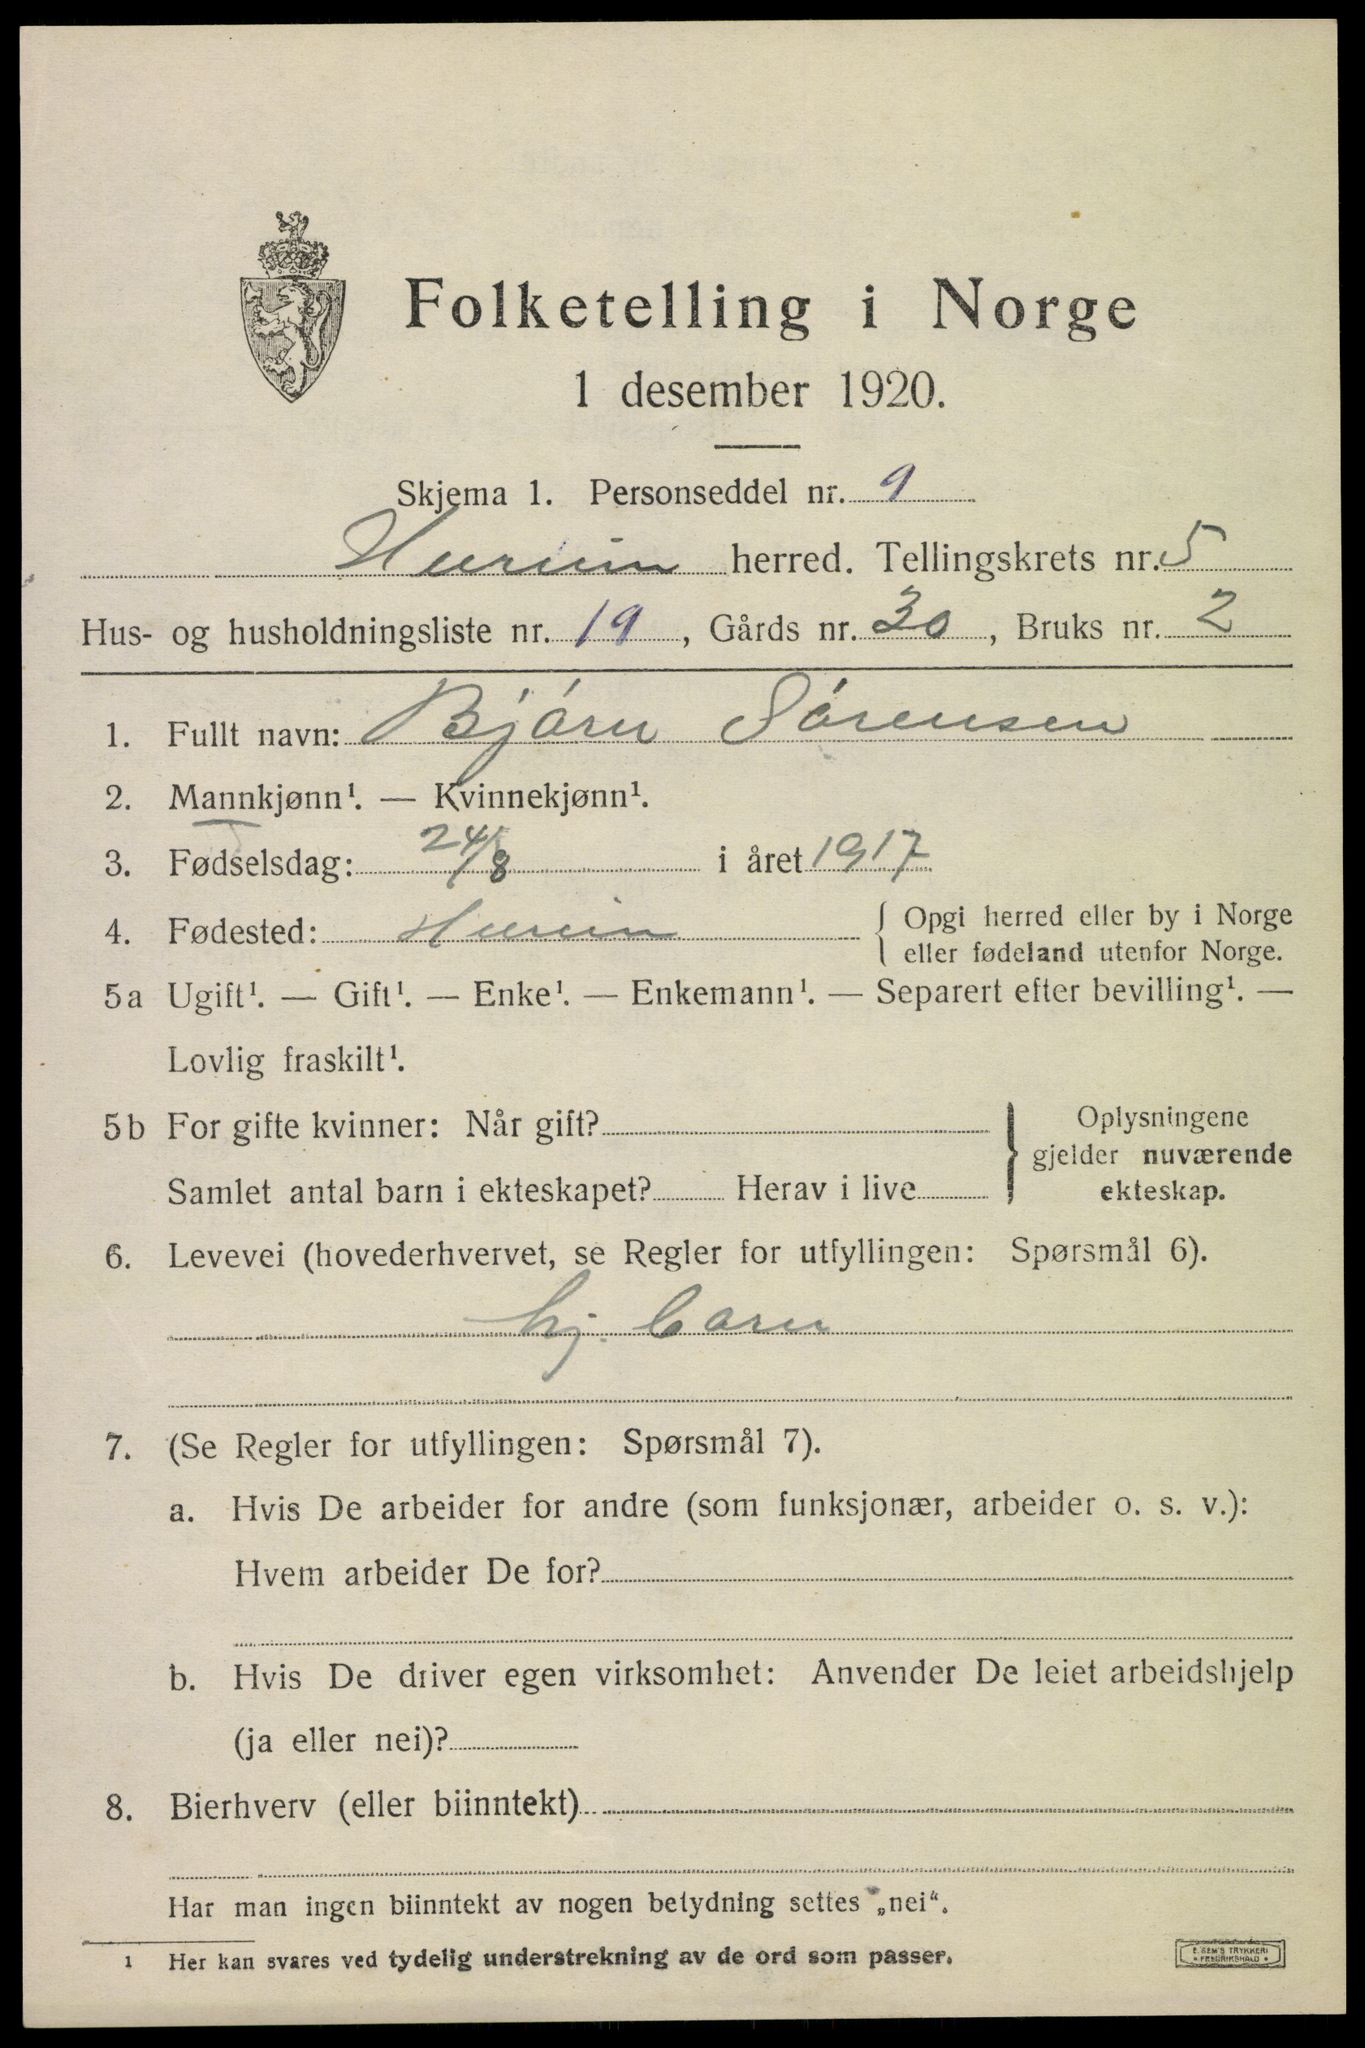 Folketelling i Norge
1 desember 1920.
Skjema 1. Personseddel nr. 9
Hurum herred. Tellingskrets nr. 5
Hus- og husholdningsliste nr. 19, Gårds nr. 30, Bruks nr. 2
1. Fullt navn: Bjórn Sórensen
2. Mannkjønn¹. — Kvinnekjønn¹.
3. Fødselsdag: 24/8 i året 1917
4. Fødested: Hurum { Opgi herred eller by i Norge
eller fødeland utenfor Norge.
5a Ugift¹. — Gift¹. — Enke¹. — Enkemann¹. — Separert efter bevilling¹. —
Lovlig fraskilt¹.
5b For gifte kvinner: Når gift? } Oplysningene
gjelder nuværende
Samlet antal barn i ekteskapet? Herav i live ekteskap.
6. Levevei (hovederhvervet, se Regler for utfyllingen: Spørsmål 6).
hj. barn
7. (Se Regler for utfyllingen: Spørsmål 7).
a. Hvis De arbeider for andre (som funksjonær, arbeider o. s. v.):
Hvem arbeider De for?
b. Hvis De driver egen virksomhet: Anvender De leiet arbeidshjelp
(ja eller nei)?
8. Bierhverv (eller biinntekt)
Har man ingen biinntekt av nogen betydning settes „nei“.
1 Her kan svares ved tydelig understrekning av de ord som passer.
E. SEM'S TRYKKERI
• FREDRIKSHALD •